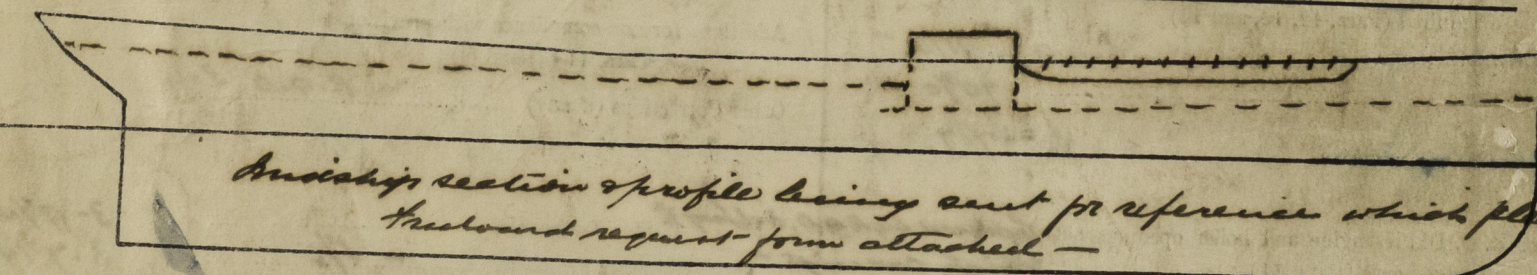 Midship section & profile being sent for reference which pl
Freeboard request form attached —